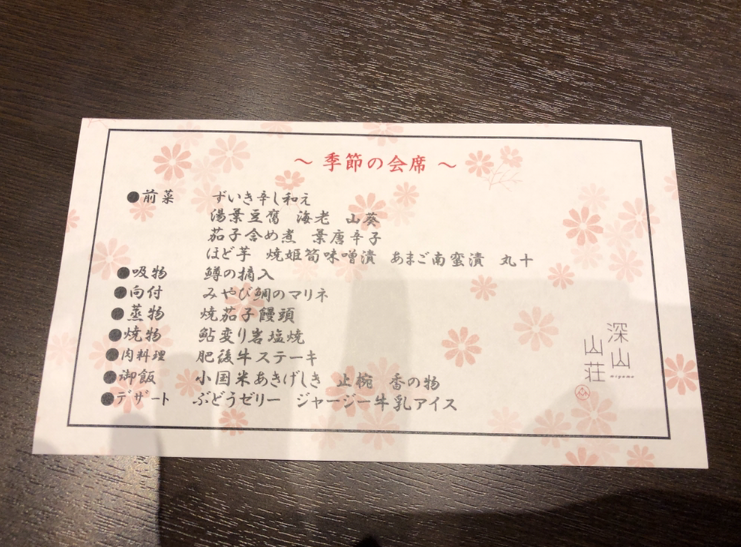 ～ 季節の会席 ～
●前菜 ずいき辛し和え
湯葉豆腐 海老 山葵
茄子含め煮 葉唐辛子
ほど芋 焼姫筍味噌漬 あまご南蛮漬 丸十
●吸物 鱒の摘入
●向付 みやび鯛のマリネ
●蒸物 焼茄子饅頭
●焼物 鮎変り岩塩焼
●肉料理 肥後牛ステーキ
●御飯 小国米あきげしき 止椀 香の物
●デザート ぶどうゼリー ジャージー牛乳アイス
深山
山荘
miyama